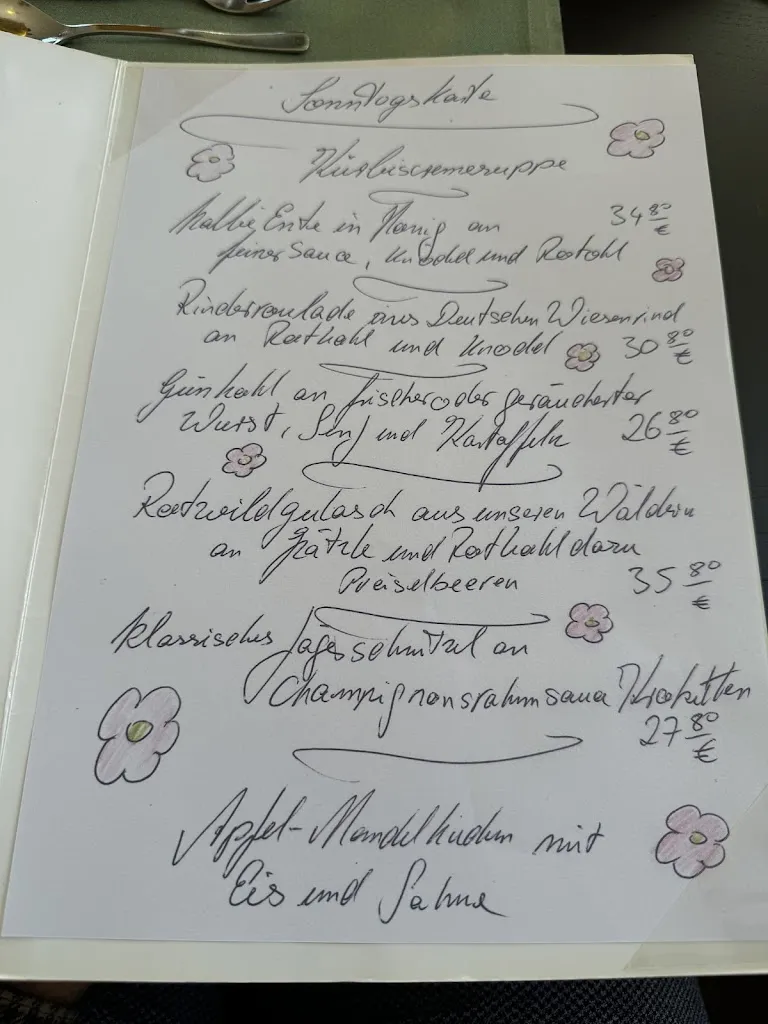 Sonntagskarte
Kürbiscremesuppe
halbe Ente in Honig an 34 80 €
feiner Sauce, Knödel und Rotkohl
Rinderroulade aus Deutschen Wiesenrind
an Rotkohl und Knödel 30 80 €
Grünkohl an frischer oder geräucherter
Wurst, Senf und Kartoffeln 26 80 €
Rotwildgulasch aus unseren Wäldern
an Spätzle und Rotkohl dazu
Preiselbeeren 35 80 €
klassisches Jägerschnitzel an
Champignonsrahmsauce Kroketten
27 80 €
Apfel-Mandelkuchen mit
Eis und Sahne